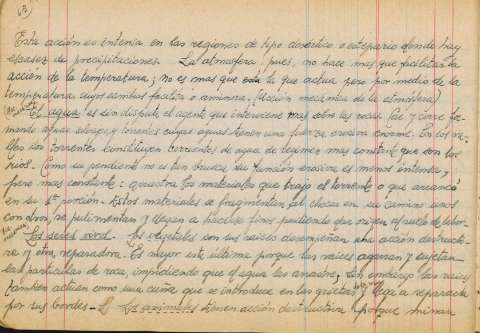 (3)
Esta acción es intensa en las regiones de tipo desértico o estepario donde hay
escasez de precipitaciones. La atmósfera pues, no hace mas que facilitar la
acción de la temperatura; no es mas que la que actua pero por medio de la
temperatura cuyos cambios facilita o aminora. (Acción mecánica de la atmósfera)
El agua: es sin disputa el agente que interviene mas sobre las rocas. Cae y corre for-
mando aguas salvajes y torrentes cuyas aguas tienen una fuerza erosiva enorme. En los va-
lles los torrentes constituyen corrientes de agua de regimen mas constante que son los
rios. Como su pendiente no es tan brusca su función erosiva es menos intensa, y
pero mas constante: arrastra los materiales que trajo el torrente o que arrancó
en su 1ª porción. Estos materiales se fragmentan al chocar en su camino unos
con otros, se pulimentan y llegan a hacerse finos pudiendo dar origen al suelo de labor.
Los seres vivos.- Los vegetales con sus raices desempeñan una acción destructo-
ra y otra reparadora. Es mayor esta ultima porque las raices agarran y sujetan
las particulas de roca, impidiendo que el agua las arrastre, sin embargo las raices
tambien actúan como una cuña que se introduce en las grietas y llega a separarla
por sus bordes.- Los animales tienen acción destructiva porque minan